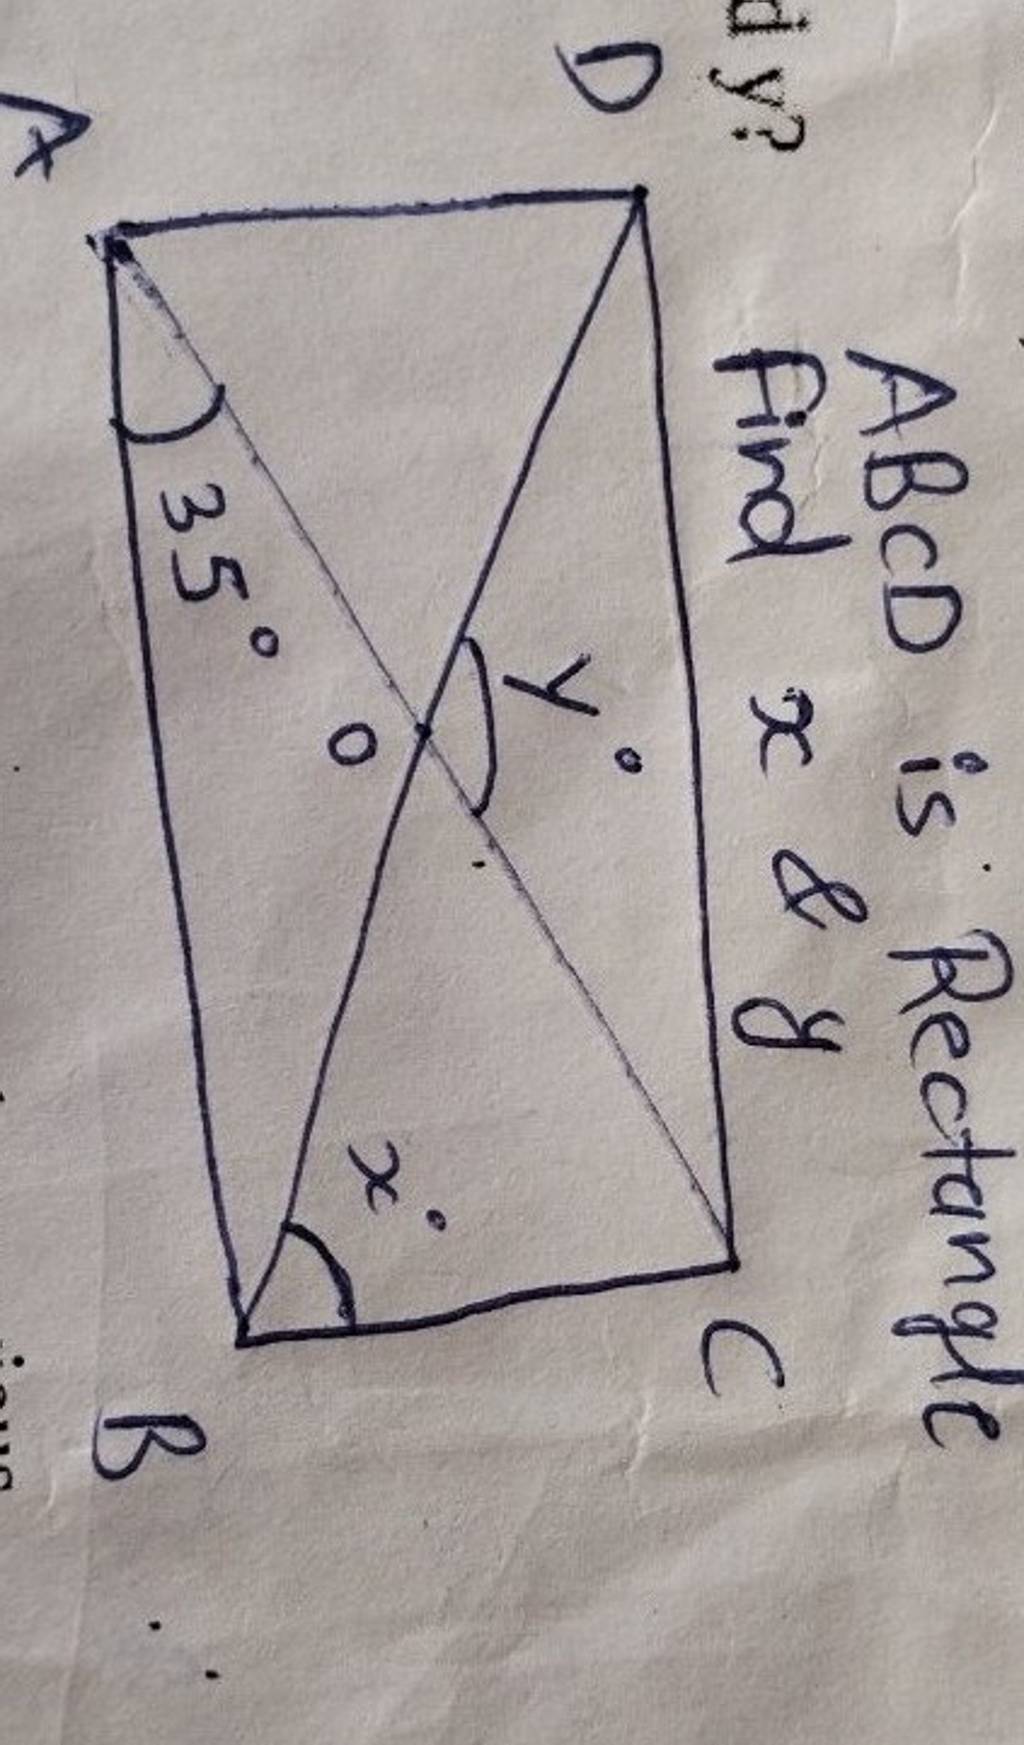 d y?
ABCD is Rectangle
find x & y
D
C
y°
O
35°
x°
A
B